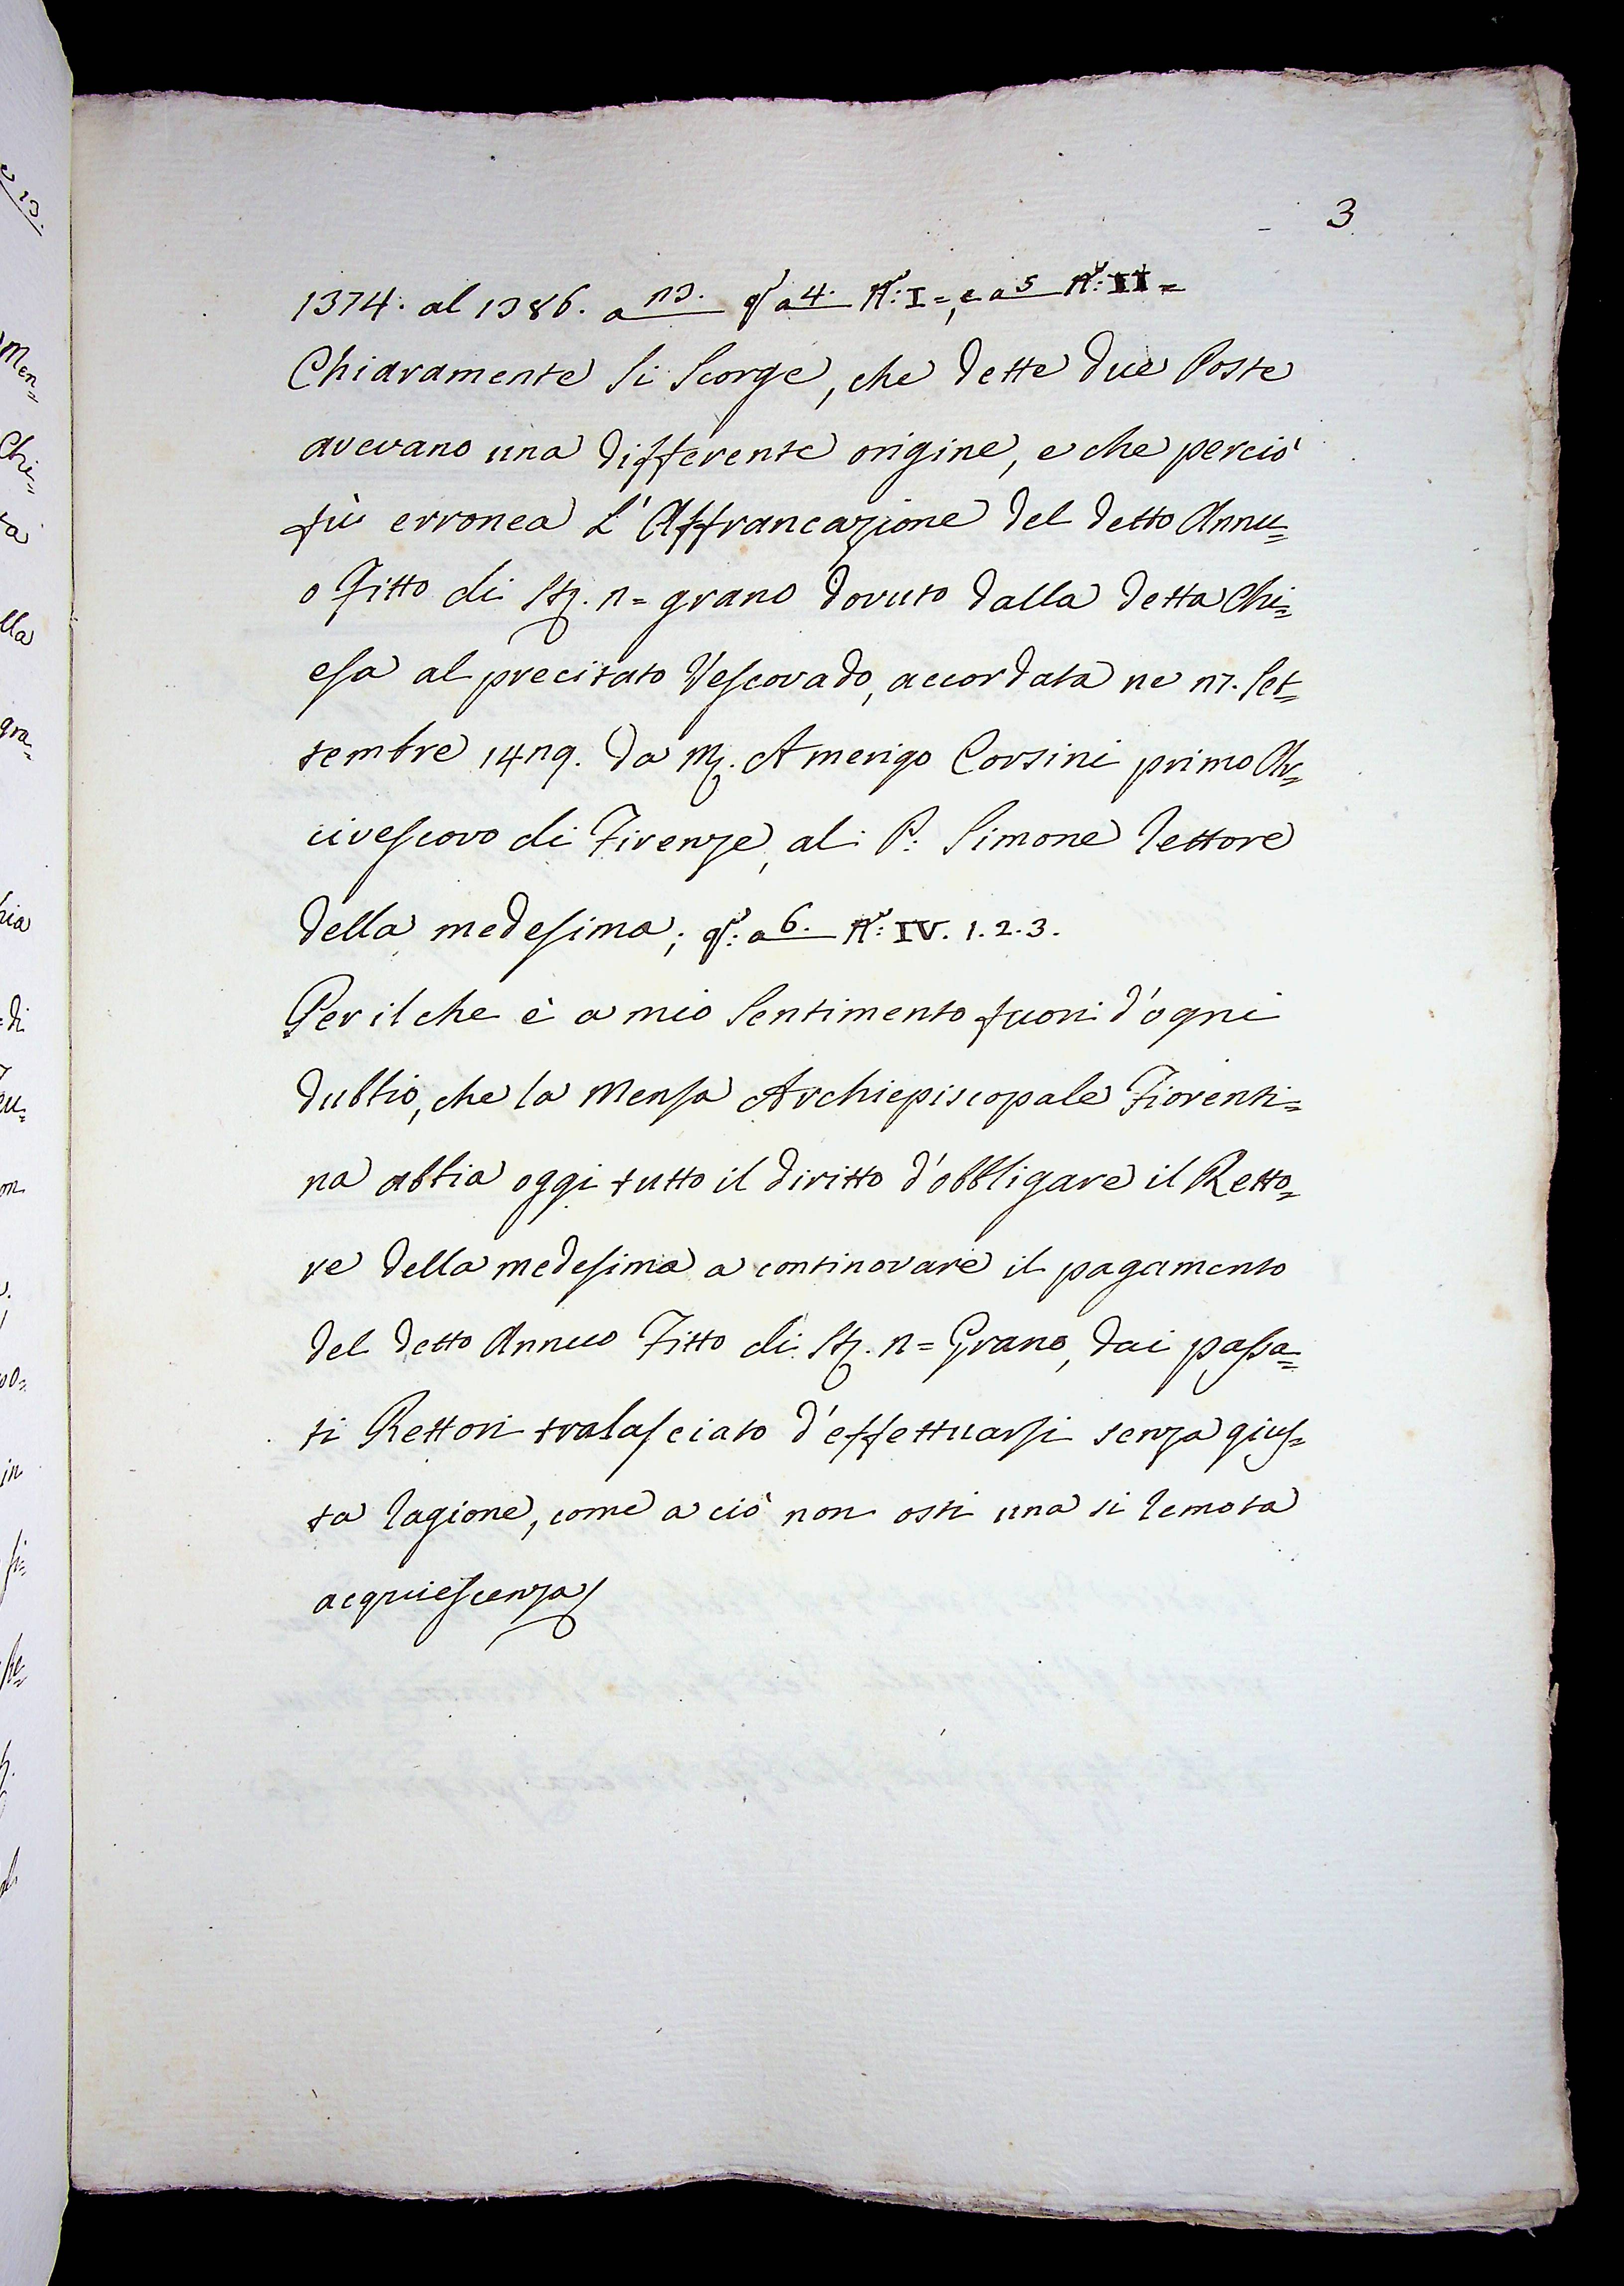 3
1374. al 1386. a 23. q.º a 4. N.º: I=, e a 5 N.º: II=
Chiaramente si scorge, che dette due Poste
avevano una differente origine, e che perciò
fù erronea L'Affrancazione del detto Annu=
o Fitto di St. 2= grano dovuto dalla detta Chi=
esa al precitato Vescovado, accordata ne 27. Set=
tembre 1429. da M. Amerigo Corsini primo Ar=
civescovo di Firenze, al P: Simone Rettore
della medesima; q.º: a 6. N.º: IV. 1. 2. 3.
Per il che è a mio sentimento fuori d'ogni
dubbio, che la Mensa Archiepiscopale Fiorenti=
na abbia oggi tutto il diritto d'obbligare il Retto=
re della medesima a continovare il pagamento
del detto Annuo Fitto di St. 2= Grano, dai passa=
ti Rettori tralasciato d'effettuarsi senza gius=
ta ragione, come a ciò non osti una si remota
acquiescenza